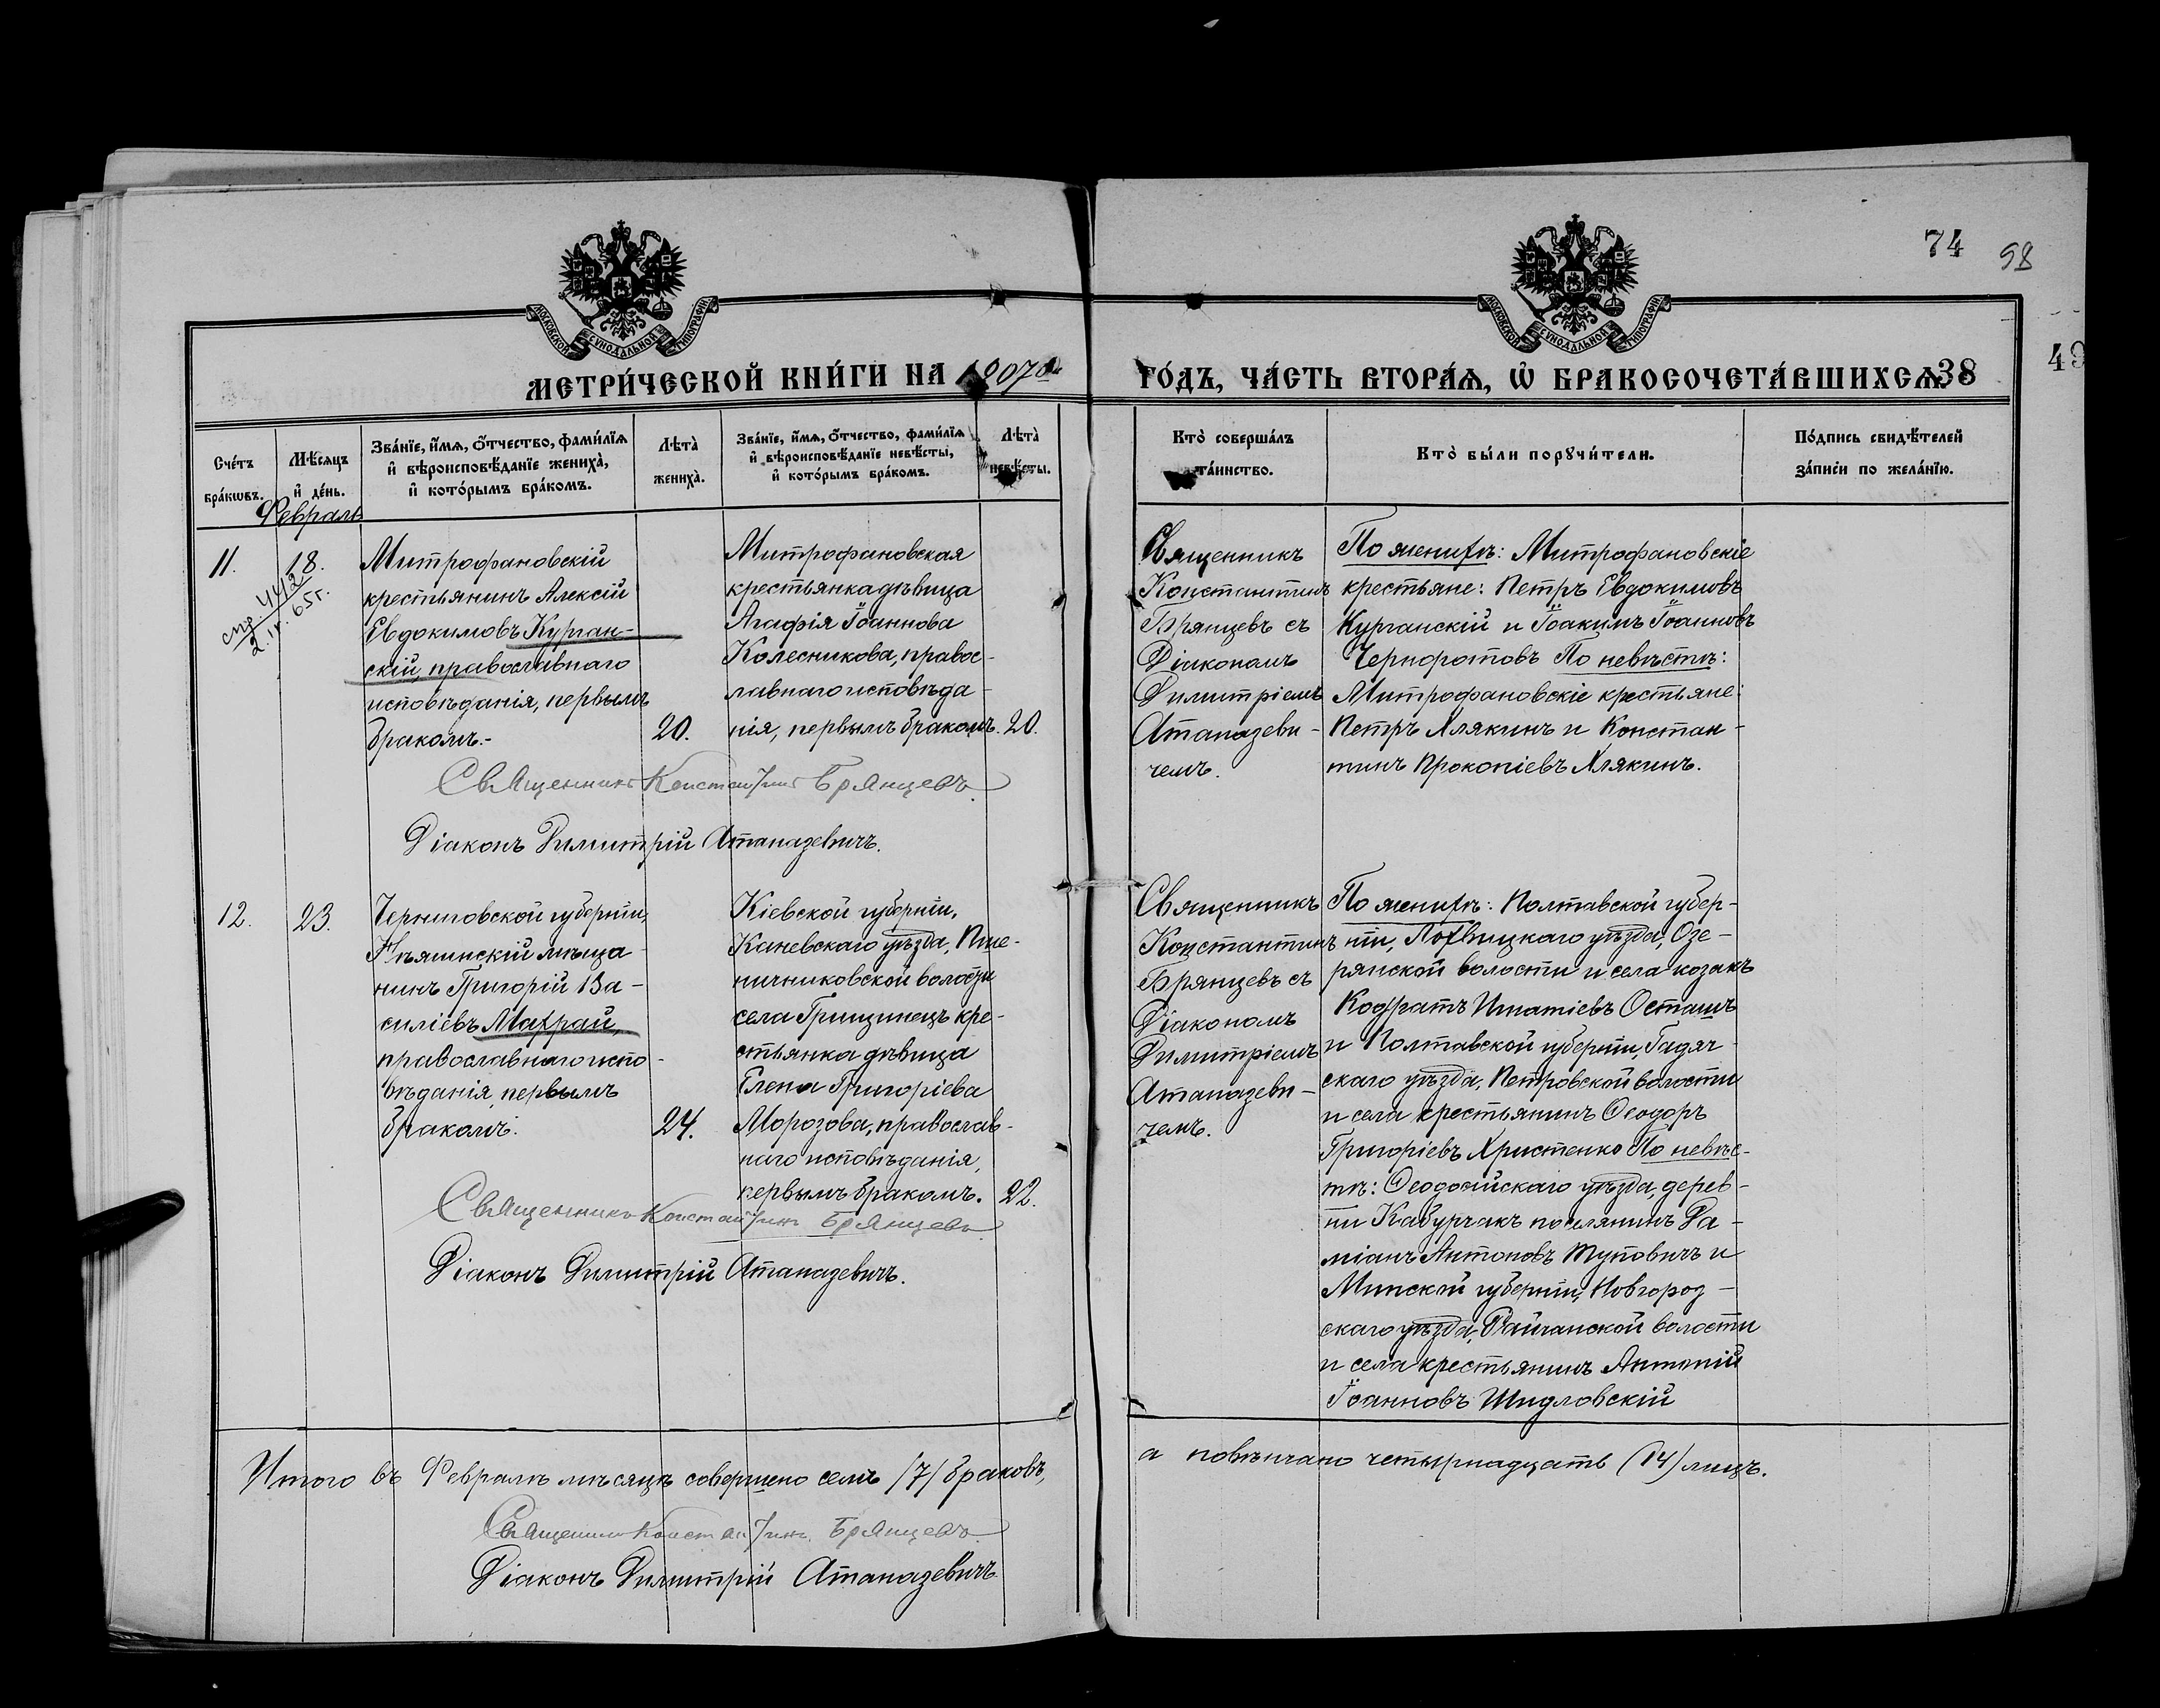 74
98
49
МОСКОВСКОЙ СѴНОДАЛЬНОЙ ТИПОГРАФІИ
МОСКОВСКОЙ СѴНОДАЛЬНОЙ ТИПОГРАФІИ
МЕТРИ́ЧЕСКОЙ КНИ́ГИ НА 1907й
ГО́ДЪ, ЧА́СТЬ ВТОРА́Ѧ, Ѡ҆ БРАКОСОЧЕТА́ВШИХСѦ. 38
Сче́тъ бра́кѡвъ.
Мѣ́сѧцъ и҆ де́нь.
Зва́нїе, и҆́мѧ, ѻ҆́тчество, фами́лїѧ
и҆ вѣроисповѣ́данїе жениха̀,
и҆ кото́рымъ бра́комъ.
Лѣ́та̀
жениха̀.
Зва́нїе, и҆́мѧ, ѻ҆́тчество, фами́лїѧ
и҆ вѣроисповѣ́данїе невѣ́сты,
и҆ кото́рымъ бра́комъ.
Лѣ́та̀
невѣ́сты.
Кто̀ соверша́лъ
та́инство.
Кто̀ бы́ли порꙋчи́тели.
По́дпись свидѣ́телей
за́писи по жела́нїю.
Февраль
11.
18.
спр 4412
2.IV.65г.
Митрофановскій
крестьянинъ Алексій
Евдокимовъ Курган-
скій, православнаго
исповѣданія, первымъ
бракомъ.-
20.
Митрофановская
крестьянка дѣвица
Агафія Іоаннова
Колесникова, правос-
лавнаго исповѣда-
нія, первымъ бракомъ.
20.
Священникъ
Константинъ
Брянцевъ съ
Діакономъ
Димитріемъ
Атаназеви-
чемъ.
По женихѣ: Митрофановскіе
крестьяне: Петръ Евдокимовъ
Курганскій и Іоакимъ Іоанновъ
Черноротовъ По невѣстѣ:
Митрофановскіе крестьяне:
Петръ Хлякинъ и Констан-
тинъ Прокопіевъ Хлякинъ.
Священникъ Константинъ Брянцевъ
Діаконъ Димитрій Атаназевичъ.
12.
23.
Черниговской губерніи,
Нѣжинскій мѣща-
нинъ Григорій Ва-
силіевъ Махрай,
православнаго испо-
вѣданія, первымъ
бракомъ.
24.
Кіевской губерніи,
Каневскаго уѣзда, Пше-
ничниковской волости
села Грищинецъ кре-
стьянка дѣвица
Елена Григоріева
Морозова, православ-
наго исповѣданія,
первымъ бракомъ.
22.
Священникъ
Константинъ
Брянцевъ съ
Діакономъ
Димитріемъ
Атаназеви-
чемъ.
По женихѣ: Полтавской губер-
ніи, Лохвицкаго уѣзда, Озе-
рянской волости и села козакъ
Кодратъ Игнатіевъ Осташъ
и Полтавской губерніи, Гадяч-
скаго уѣзда, Петровской волости
и села крестьянинъ Ѳеодоръ
Григоріевъ Христенко По невѣс-
тѣ: Ѳеодосійскаго уѣзда, дерев-
ни Кабурчакъ поселянинъ Да-
міанъ Антоновъ Туповичъ и
Минской губерніи, Новгород-
скаго уѣзда, Райчанской волости
и села крестьянинъ Антоній
Іоанновъ Шидловскій
Священникъ Константинъ Брянцевъ
Діаконъ Димитрій Атаназевичъ.
Итого въ Февралѣ мѣсяцѣ совершено семь /7/ браковъ,
а повѣнчано четырнадцать (14) лицъ.
Священникъ Константинъ Брянцевъ
Діаконъ Димитрій Атаназевичъ